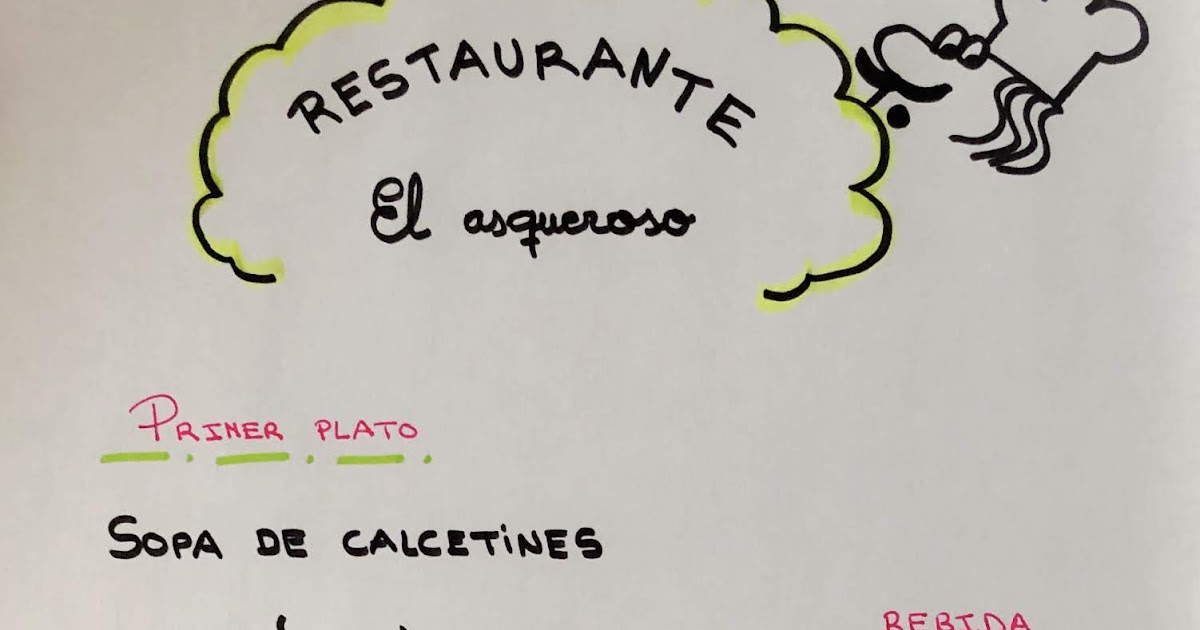 RESTAURANTE
El asqueroso
PRIMER PLATO
SOPA DE CALCETINES
BEBIDA